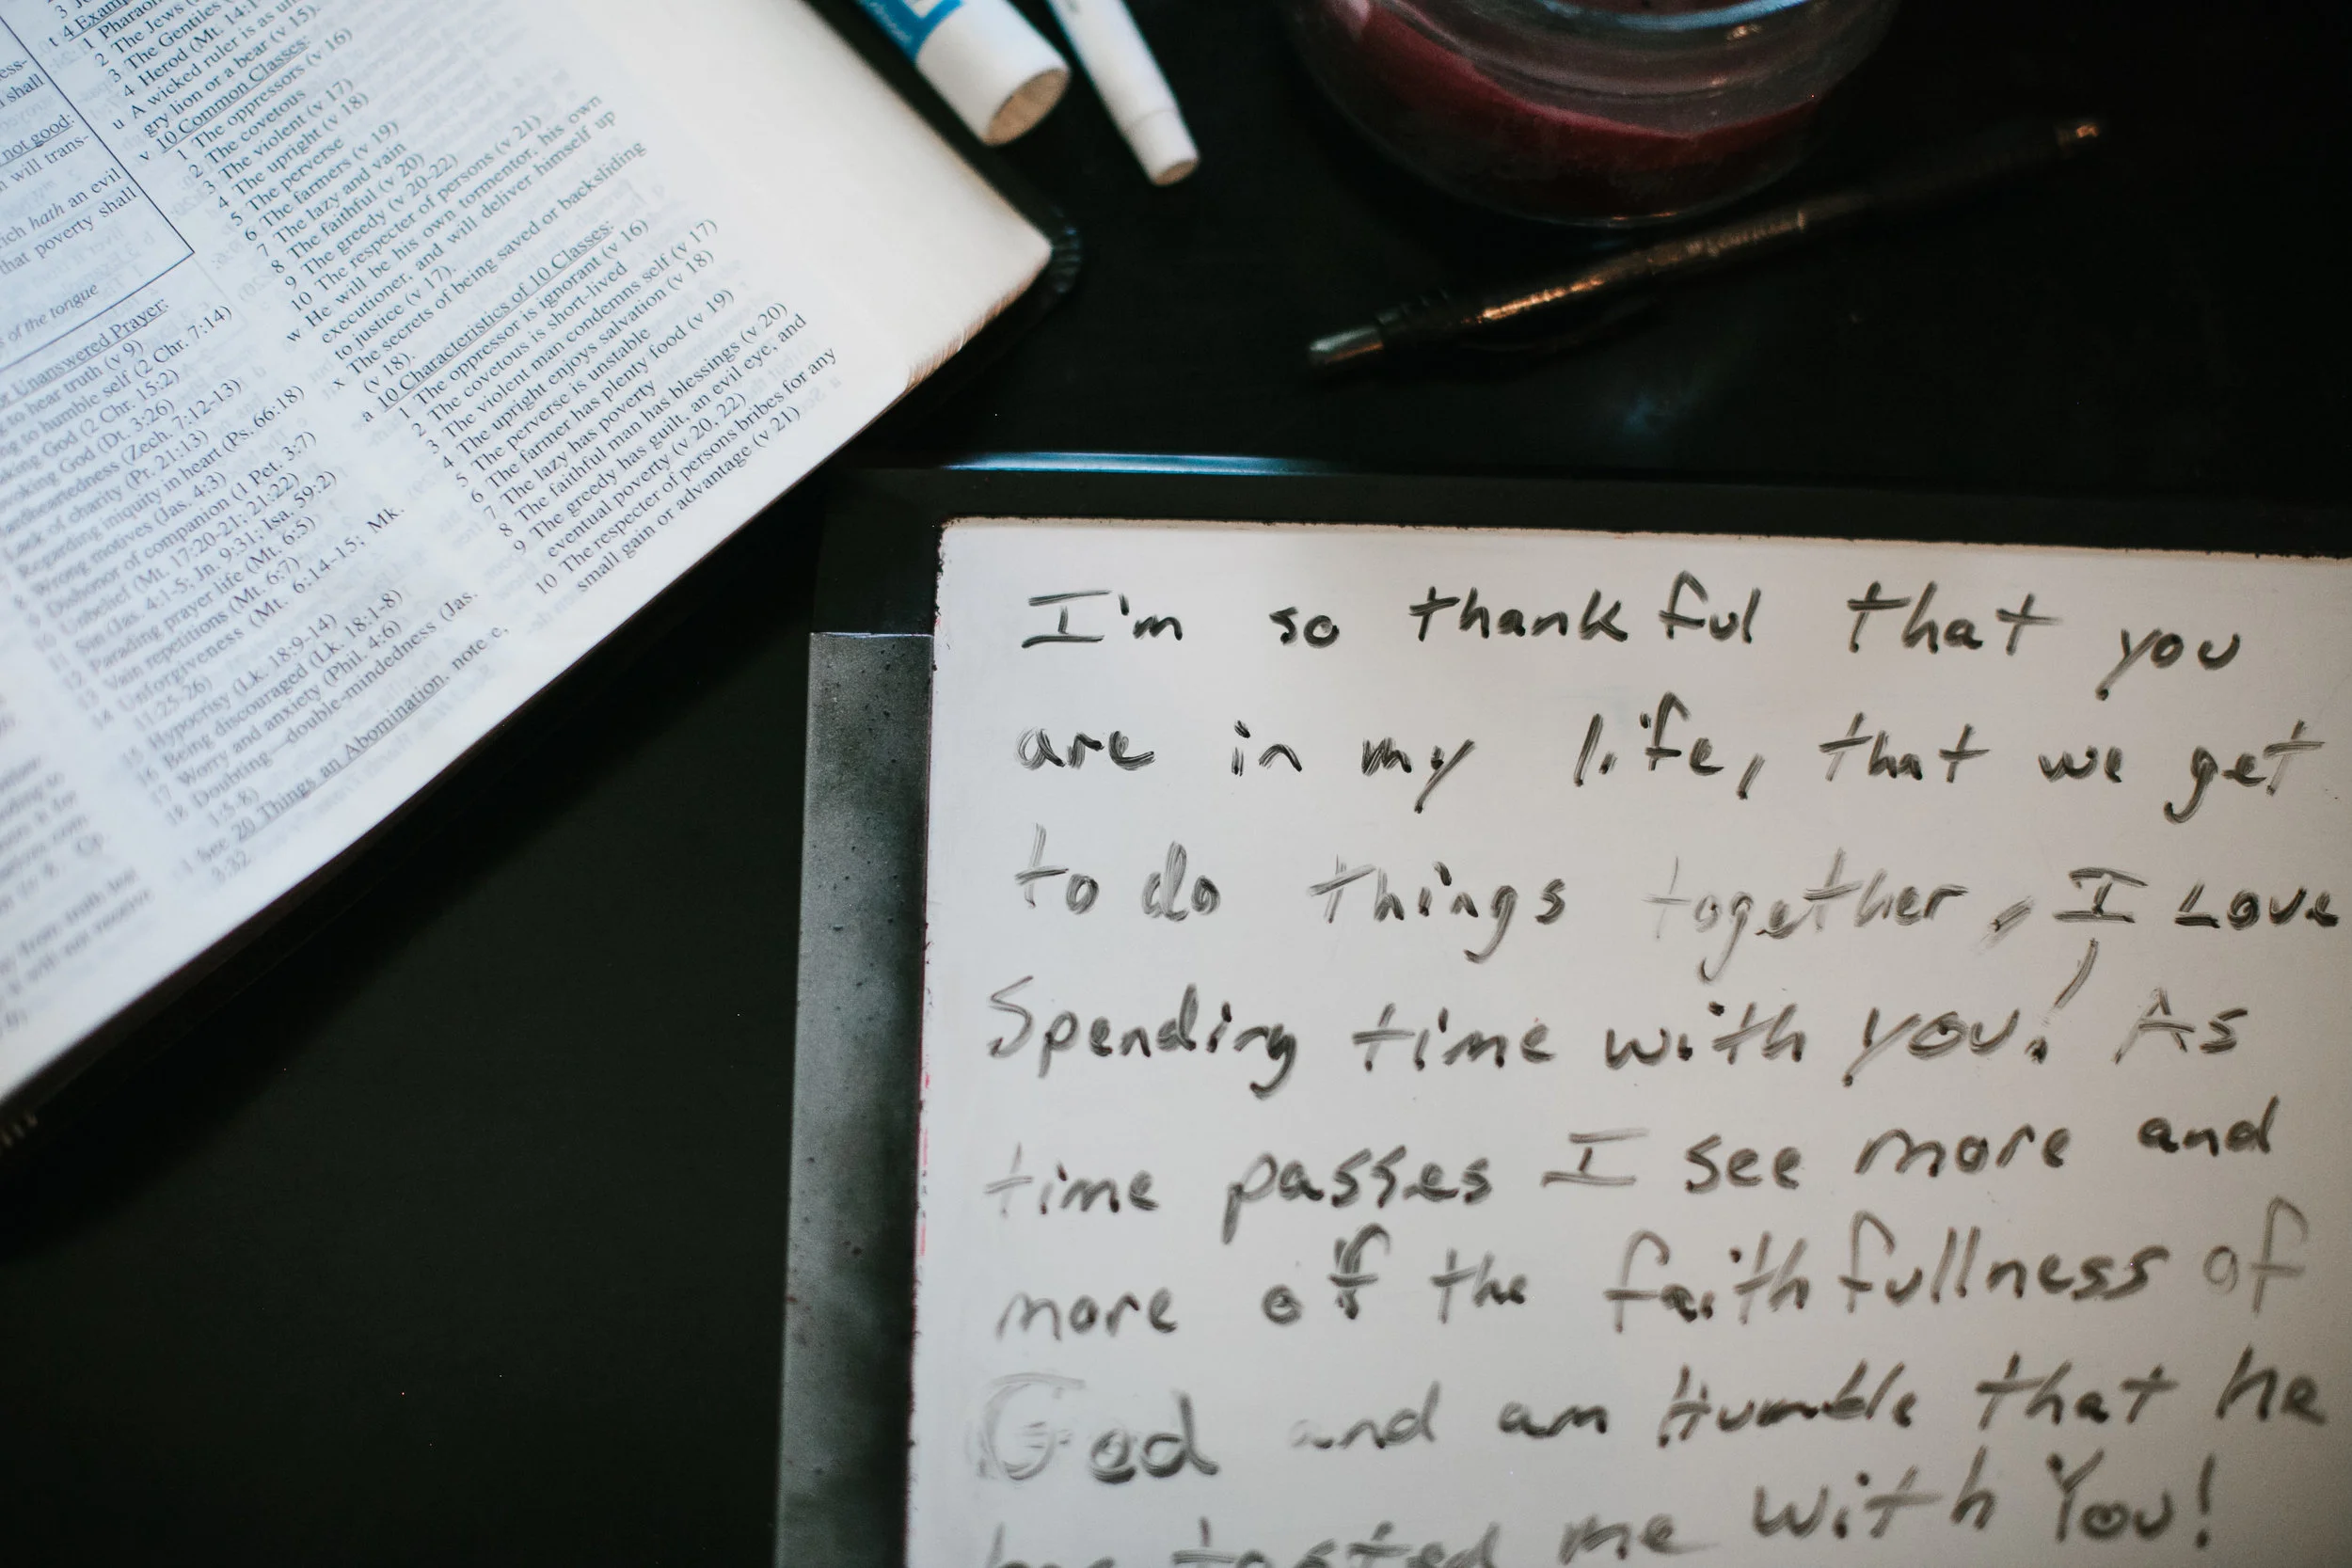 t 4 Exam
1 Pharao
2 The Jews
3 The Gentiles
4 Herod (Mt. 14:1
u A wicked ruler is as un
gry lion or a bear (v 15).
v 10 Common Classes:
1 The oppressors (v 16)
2 The covetous
3 The violent (v 17)
4 The upright (v 18)
5 The perverse
6 The farmers (v 19)
7 The lazy and vain
8 The faithful (v 20)
9 The greedy (v 20-22)
10 The respecter of persons (v 21)
w He will be his own tormentor, his own
executioner, and will deliver himself up
to justice (v 17).
x The secrets of being saved or backsliding
(v 18).
a 10 Characteristics of 10 Classes:
1 The oppressor is ignorant (v 16)
2 The covetous is short-lived
3 The violent man condemns self (v 17)
4 The upright enjoys salvation (v 18)
5 The perverse is unstable
6 The farmer has plenty food (v 19)
7 The lazy has poverty
8 The faithful man has blessings (v 20)
9 The greedy has guilt, an evil eye, and
eventual poverty (v 20, 22)
10 The respecter of persons bribes for any
small gain or advantage (v 21)
ess-
shall
not good:
will trans-
ich hath an evil
that poverty shall
s of the tongue
Unanswered Prayer:
to hear truth (v 9)
ng to humble self (2 Chr. 7:14)
God (2 Chr. 15:2)
voking God (Dt. 3:26)
ardheartedness (Zech. 7:12-13)
Lack of charity (Pr. 21:13)
Regarding iniquity in heart (Ps. 66:18)
8 Wrong motives (Jas. 4:3)
9 Dishonor of companion (1 Pet. 3:7)
10 Unbelief (Mt. 17:20-21; 21:22)
11 Sin (Jas. 4:1-5; Jn. 9:31; Isa. 59:2)
12 Parading prayer life (Mt. 6:5)
13 Vain repetitions (Mt. 6:7)
14 Unforgiveness (Mt. 6:14-15; Mk.
11:25-26)
15 Hypocrisy (Lk. 18:9-14)
16 Being discouraged (Lk. 18:1-8)
17 Worry and anxiety (Phil. 4:6)
18 Doubting—double-mindedness (Jas.
1:5-8)
See 20 Things an Abomination, note e,
3:32
I'm so thankful that you
are in my life, that we get
to do things together, I Love
Spending time with you! As
time passes I see more and
more of the faithfullness of
God and am Humble that he
tosted me with You!